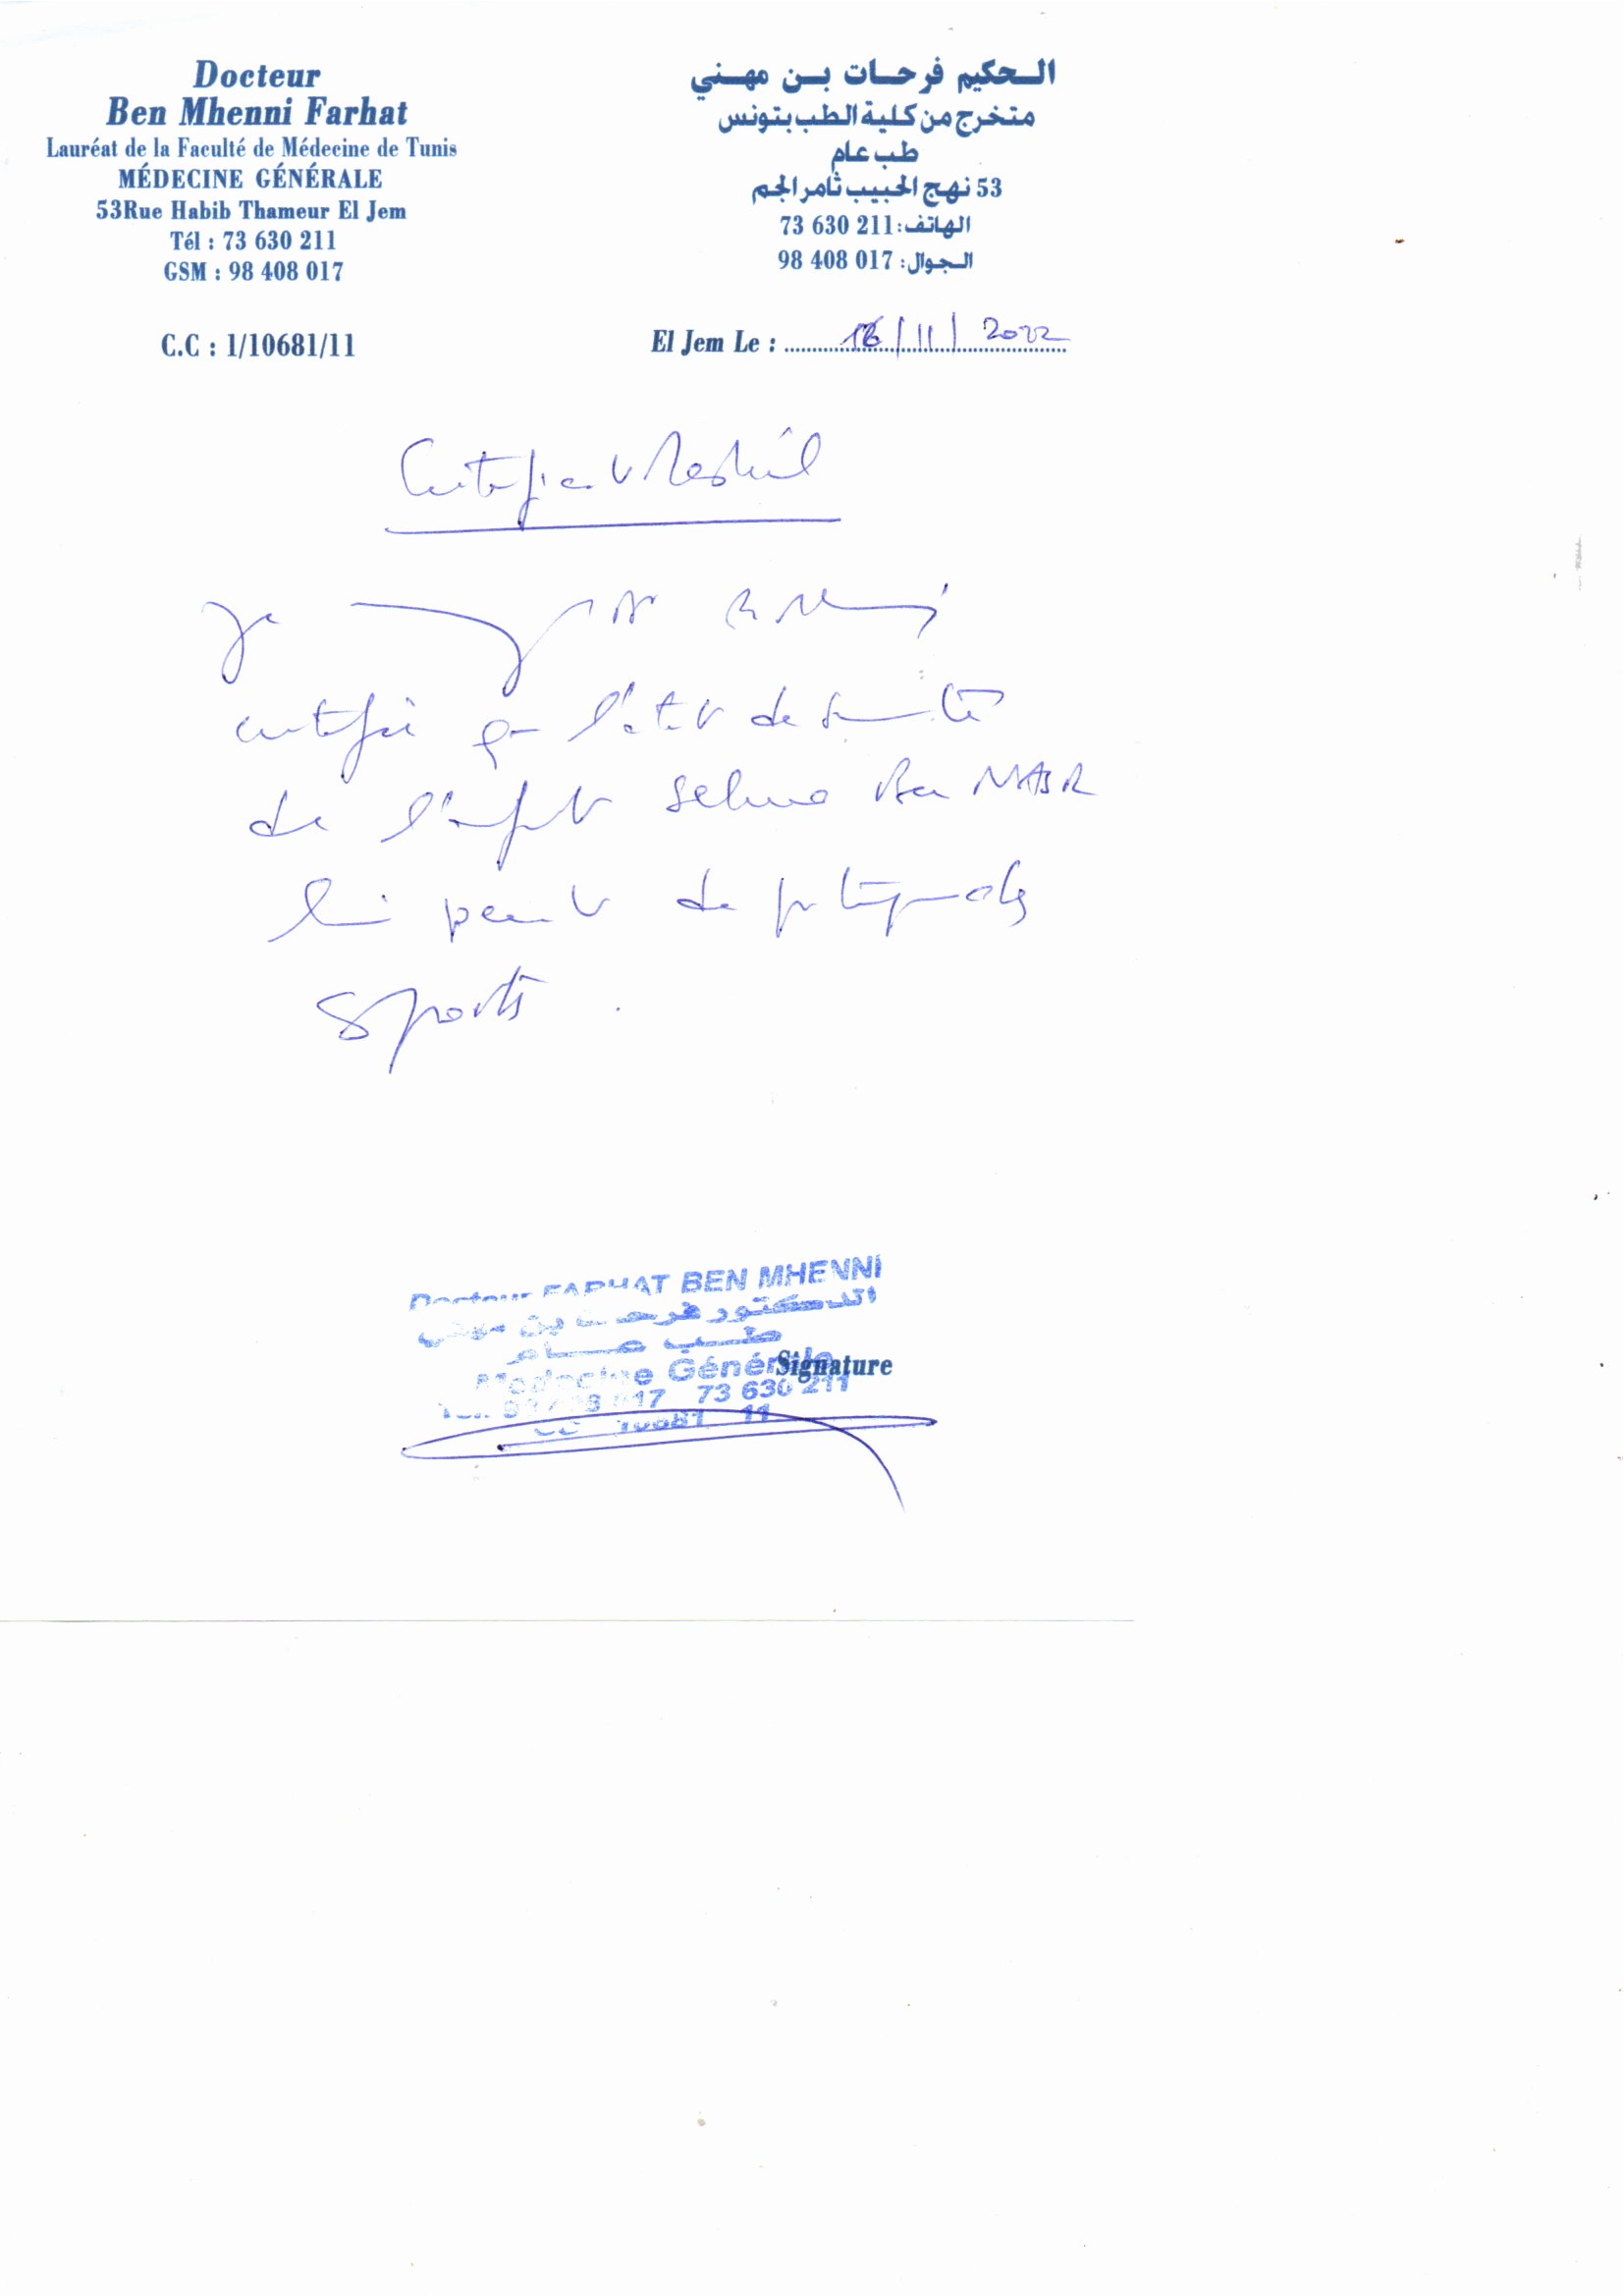 Docteur
Ben Mhenni Farhat
Lauréat de la Faculté de Médecine de Tunis
MÉDECINE GÉNÉRALE
53Rue Habib Thameur El Jem
Tél : 73 630 211
GSM : 98 408 017
C.C : 1/10681/11
الحكيم فرحات بن مهني
متخرج من كلية الطب بتونس
طب عام
53 نهج الحبيب ثامر الجم
الهاتف: 73 630 211
الجوال: 98 408 017
El Jem Le : 16/11/2022
Certificat Médical
Je
certifie que l'état de santé
de l'enfant Selma Ben NASR
lui permet de pratiquer des
sports.
Docteur FARHAT BEN MHENNI
الدكتور فرحات بن مهني
طب عام
Medecine Générale
Signature
73 630 211
10681 11